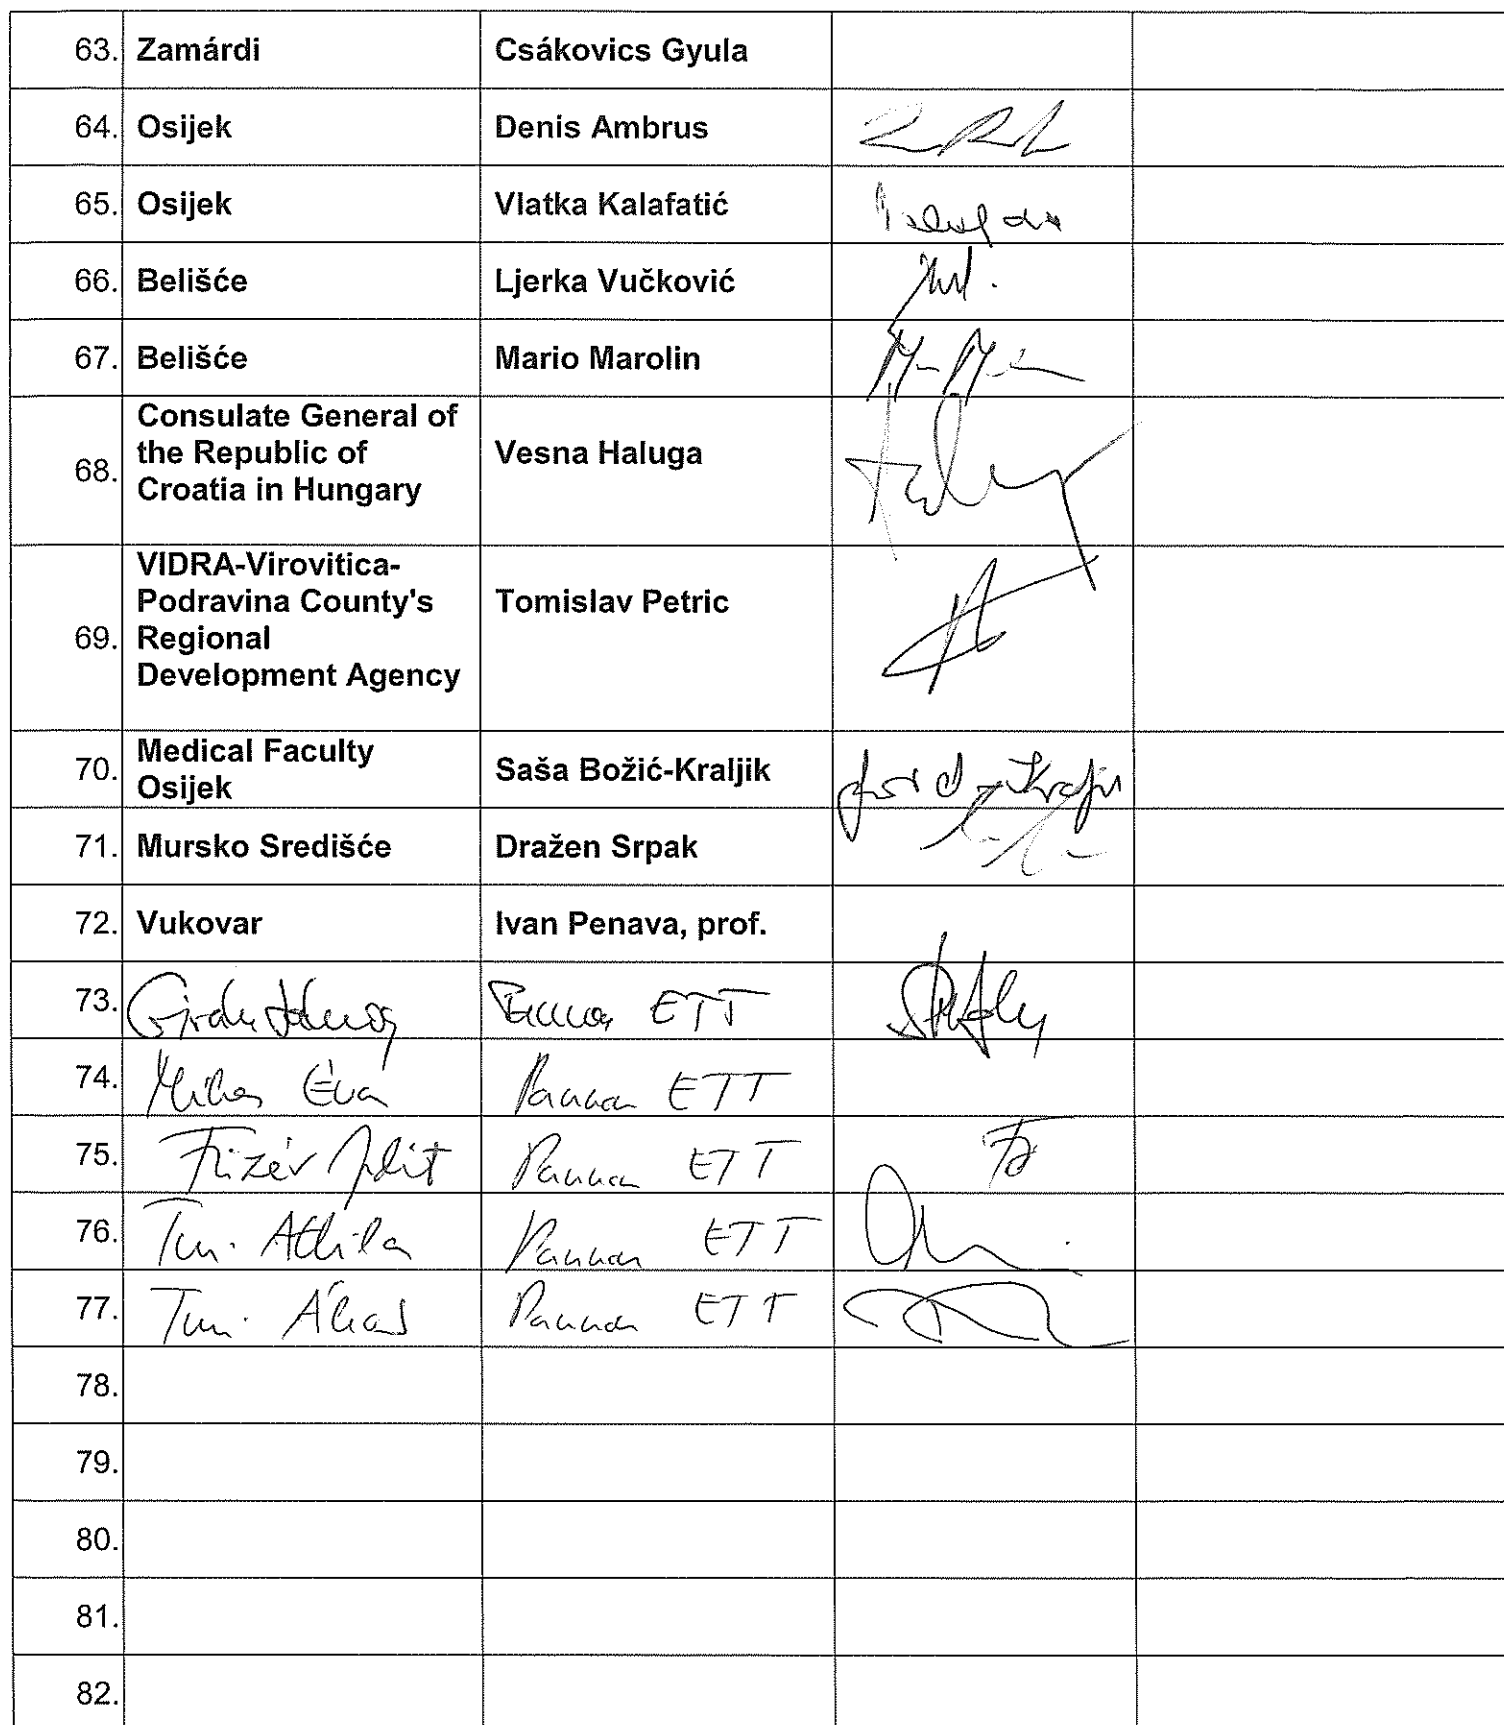 63. Zamárdi Csákovics Gyula
64. Osijek Denis Ambrus
65. Osijek Vlatka Kalafatić
66. Belišće Ljerka Vučković
67. Belišće Mario Marolin
68. Consulate General of
the Republic of
Croatia in Hungary Vesna Haluga
69. VIDRA-Virovitica-
Podravina County's
Regional
Development Agency Tomislav Petric
70. Medical Faculty
Osijek Saša Božić-Kraljik
71. Mursko Središće Dražen Srpak
72. Vukovar Ivan Penava, prof.
73. ETT
74. Éva Pannon ETT
75. Judit Pannon ETT
76. Attila Pannon ETT
77. Pannon ETT
78.
79.
80.
81.
82.